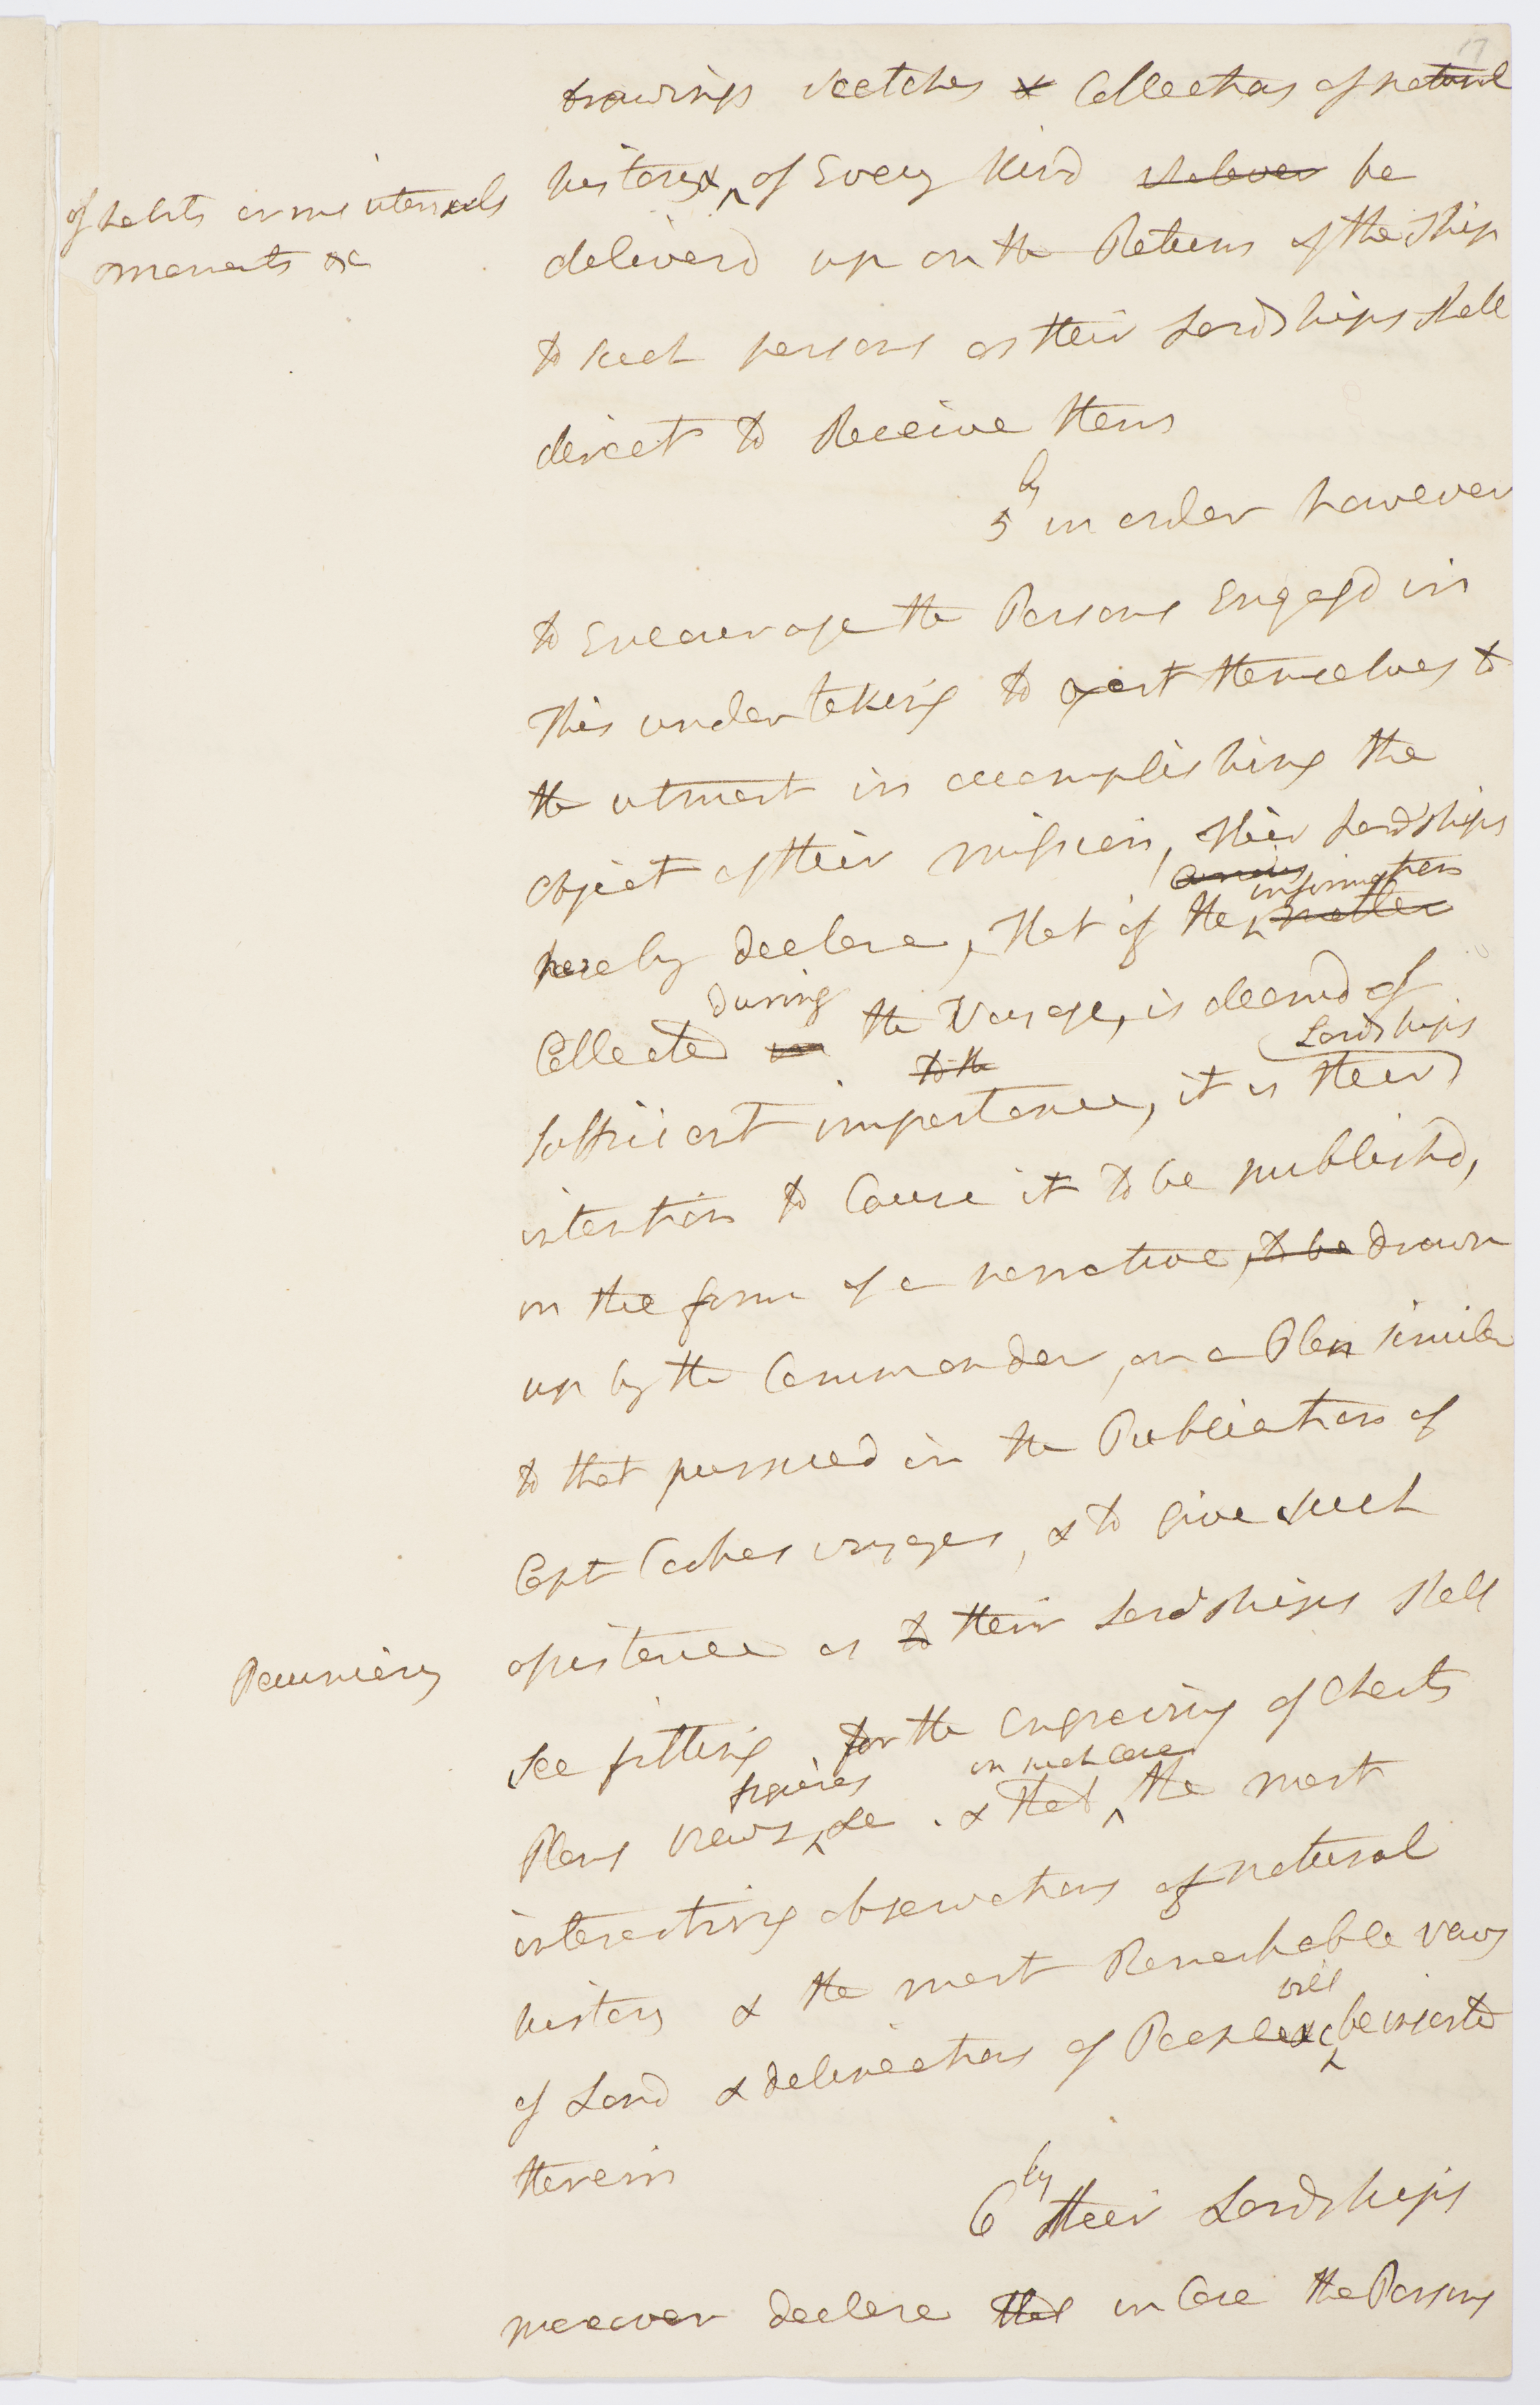 17
drawings sketches & Collections of natural
history & of Every kind whatever be
of habits arms utensils
ornaments &c
deliverd up on the Return of the Ship
to such persons as their Lordships shall
direct to Receive them
5ly in order however
to Encourage the Persons Engagd in
This undertaking to exert themselves to
the utmost in accomplishing the
object of their mission, their Lordships
information
hereby declare, that if the matter
during
Collected in the Voyage, is deemd of
to the
Lordships
sufficient importance, it is their
intention to Cause it to be publishd,
in the form of a narrative, to be drawn
up by the Commander, on a Plan similar
to that pursued in the Publication of
Capt Cookes voyages, & to give such
Pecuniary
assistance as to their Lordships shall
see fitting for the Engraving of Charts
figures in such Case
Plans views &c . & that the most
interesting observations of natural
history & the most Remarkable views
will
of Land & delineations of People &c be inserted
therein
6ly their Lordships
moreover declare that in Case the Persons